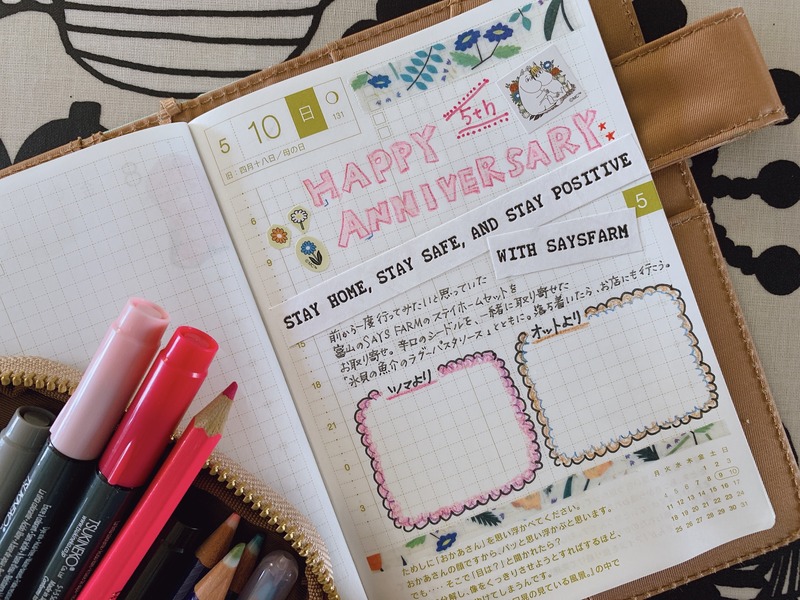 5 10 日
131
旧:四月十八日/母の日
5th
HAPPY
ANNIVERSARY
STAY HOME, STAY SAFE, AND STAY POSITIVE
WITH SAYSFARM
5
6
9
15
18
21
0
3
前から一度行ってみたいと思っていた
富山のSAYS FARMのステイホームセットを
お取り寄せ。辛口のシードルを、一緒に取り寄せた
"氷見の魚介のラグーパスタソース"とともに。落ち着いたら、お店にも行こう。
ツマより
オットより
月 火 水 木 金 土 日
1 2 3
4 5 6 7 8 9 10
11 12 13 14 15 16 17
18 19 20 21 22 23 24
25 26 27 28 29 30 31
ためしに「おかあさん」を思い浮かべてください。
おかあさんの顔ですから、パッと思い浮かぶと思います。
でも……そこで「目は?」と聞かれたら?
像をくっきりさせようとすればするほど、
TSUKINEKO